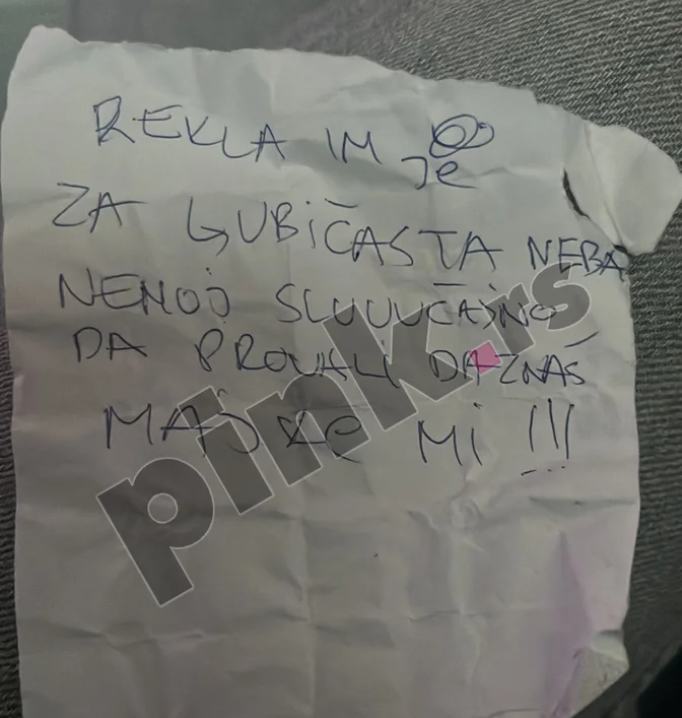 REKLA IM JE
ZA LJUBIČASTA NEBA
NEMOJ SLUUUČAJNO
DA PROVALI DA ZNAŠ
MAJKE MI !!!
pink.rs